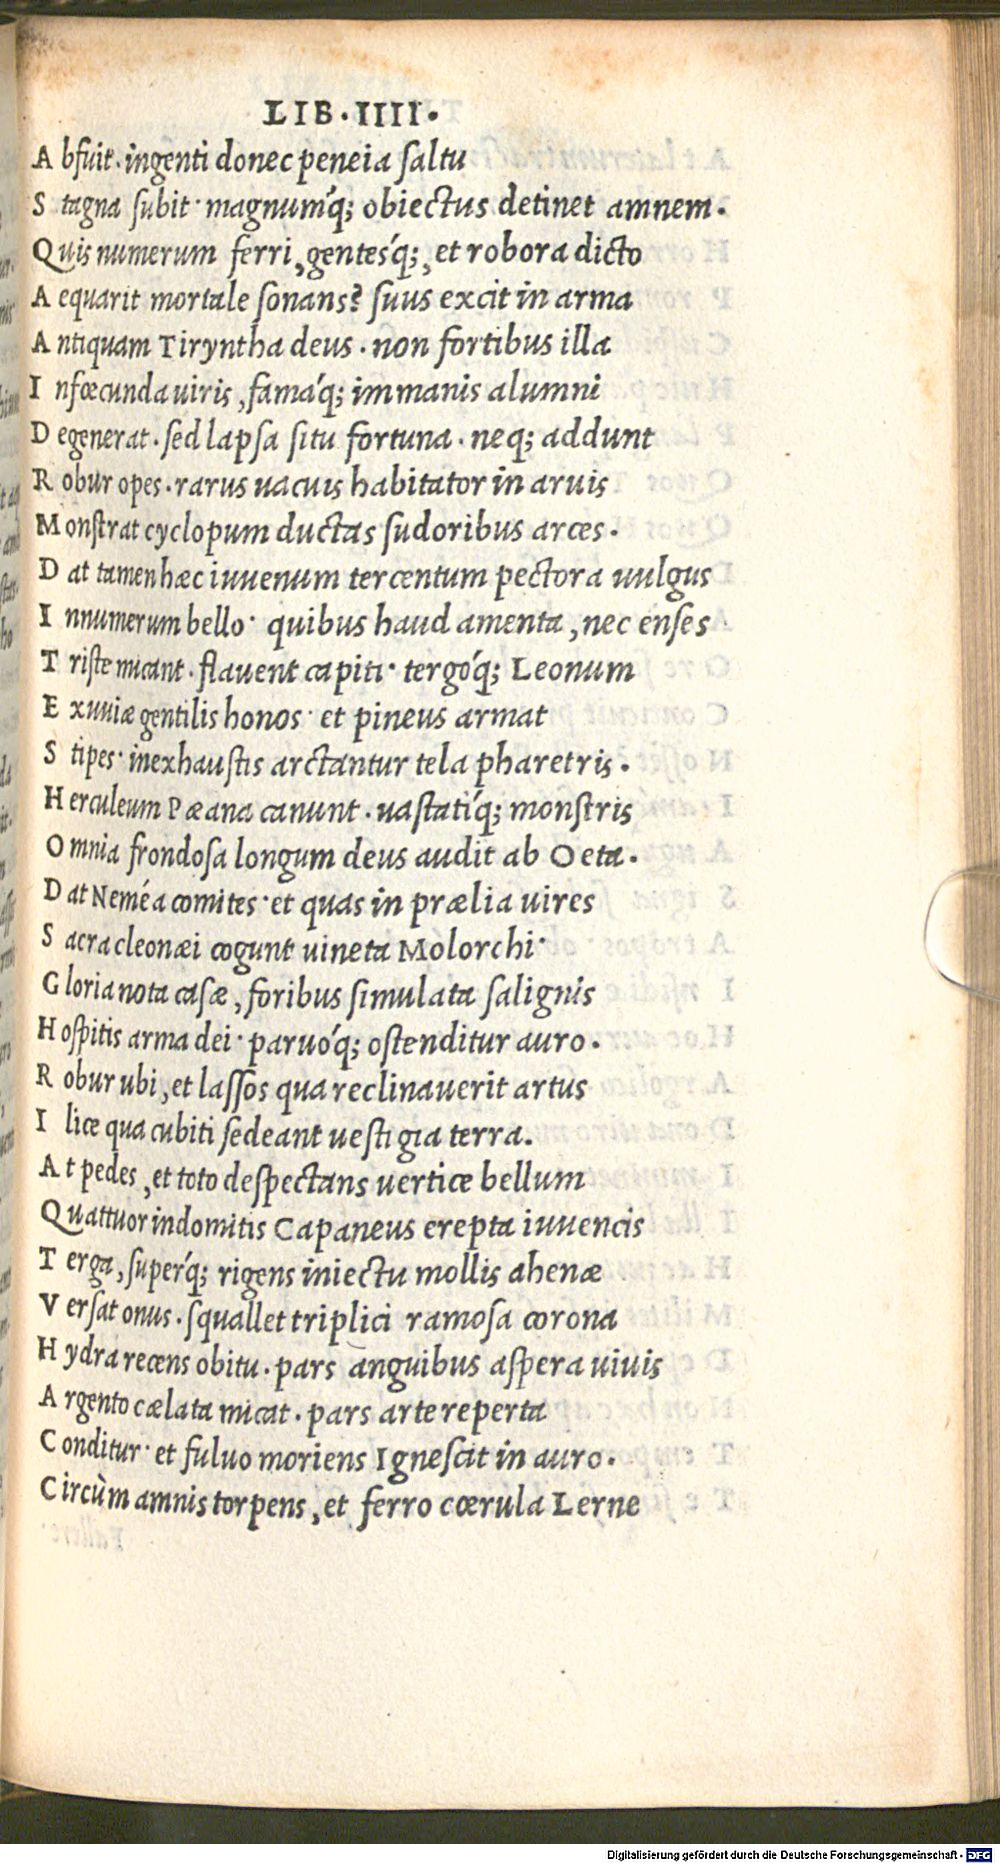 LIB·IIII·
A bſuit·ingenti donec peneia ſaltu
S tagna ſubit· magnumq́; obiectus detinet amnem·
Quis numerum ferri, gentesq́;, et robora dicto
A equarit mortale ſonans? ſuus excit in arma
A ntiquam Tiryntha deus·non fortibus illa
I nfœcunda uiris, famaq́; immanis alumni
D egenerat·ſed lapſa ſitu fortuna·neq; addunt
R obur opes·rarus uacuis habitator in aruis
M onſtrat cyclopum ductas ſudoribus arces·
D at tamen hæc iuuenum tercentum pectora uulgus
I nnumerum bello· quibus haud amenta, nec enſes
T riſte micant·flauent capiti· tergoq́; Leonum
E xuuiæ gentilis honos· et pineus armat
S tipes· inexhauſtis arctantur tela pharetris·
H erculeum Pæana canunt·uaſtatiq́; monſtris
O mnia frondoſa longum deus audit ab Oeta·
D at Neméa comites·et quas in prælia uires
S acra cleonæi cogunt uineta Molorchi·
G loria nota caſæ, foribus ſimulata ſalignis
H oſpitis arma dei· paruoq́; oſtenditur auro·
R obur ubi, et laſſos qua reclinauerit artus
I lice qua cubiti ſedeant ueſtigia terra.
A t pedes, et toto deſpectans uertice bellum
Quattuor indomitis Capaneus erepta iuuencis
T erga, ſuperq́; rigens iniectu mollis ahenæ
V erſat onus·ſquallet triplici ramoſa corona
H ydra recens obitu·pars anguibus aſpera uiuis
A rgento cælata micat·pars arte reperta
C onditur· et fuluo moriens Igneſcit in auro·
C ircùm amnis torpens, et ferro cœrula Lerne
Digitalisierung gefördert durch die Deutsche Forschungsgemeinschaft - DFG